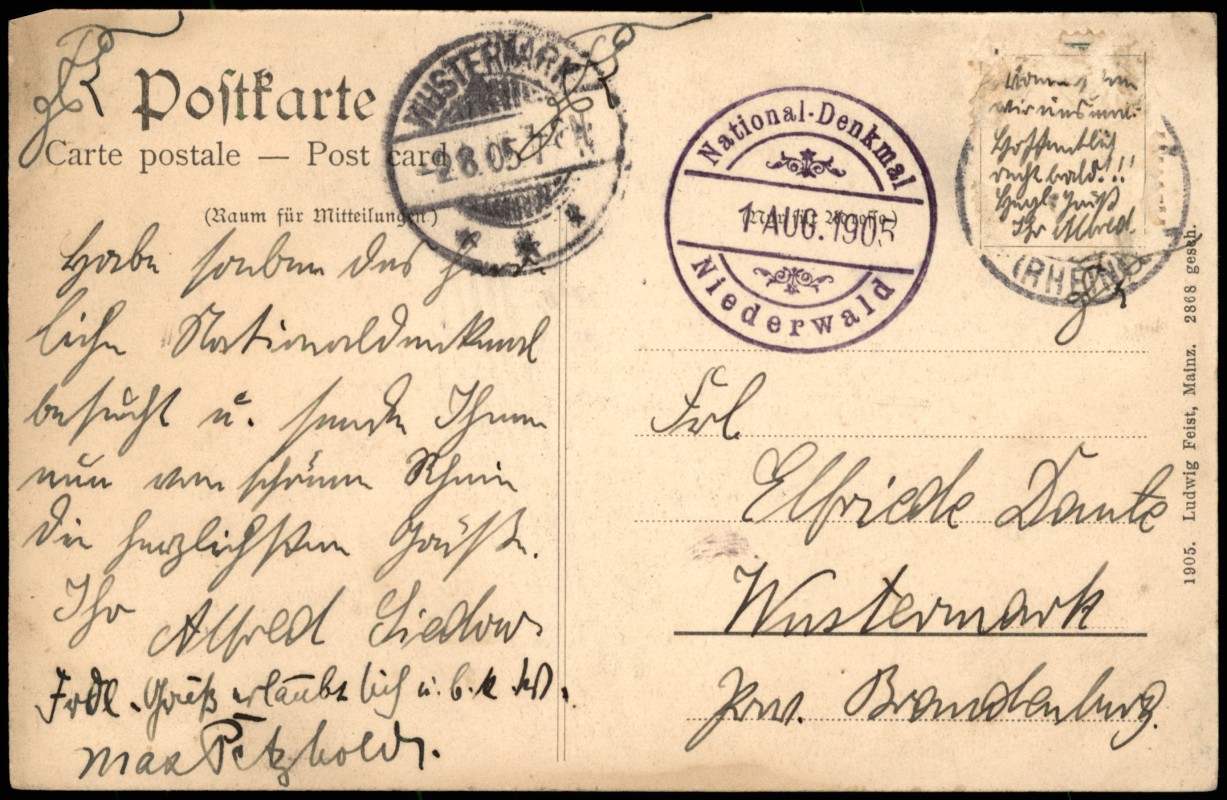 Postkarte
Carte postale — Post card
(Raum für Mitteilungen.)
WUSTERMARK
-2.8.05.7-8N
National-Denkmal
1 AUG. 1905
Niederwald
wir uns mal.
Hoffentlich
recht bald.!!
Herzl. Gruß
Ihr Alfred
(RHEIN)
Habe soeben das herr-
liche Nationaldenkmal
besucht u. sende Ihnen
nun vom schönen Rhein
die herzlichsten Grüße.
Ihr
Alfred Liedow.
Frdl. Gruß erlaubt sich u.b.k.
Max Petzhold.
Frl.
Elfriede Dante
Wustermark
Prov. Brandenburg.
1905. Ludwig Feist, Mainz. 2868 gesch.